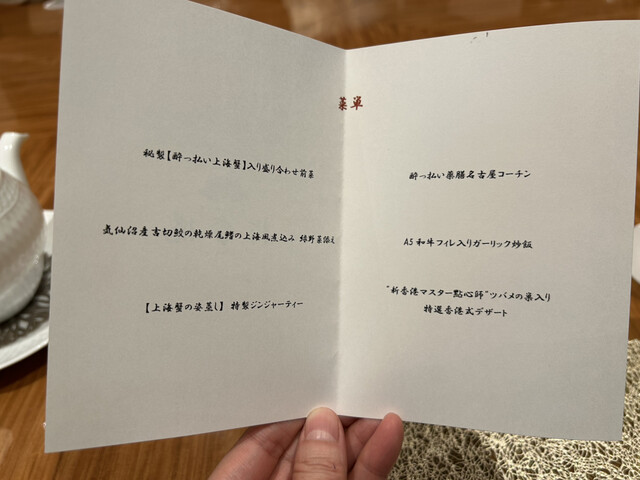 菜単
秘製【酔っ払い上海蟹】入り盛り合わせ前菜
気仙沼産吉切鮫の乾燥尾鰭の上海風煮込み 緑野菜添え
【上海蟹の姿蒸し】 特製ジンジャーティー
酔っ払い薬膳名古屋コーチン
A5和牛フィレ入りガーリック炒飯
"新香港マスター點心師"ツバメの巣入り
特選香港式デザート